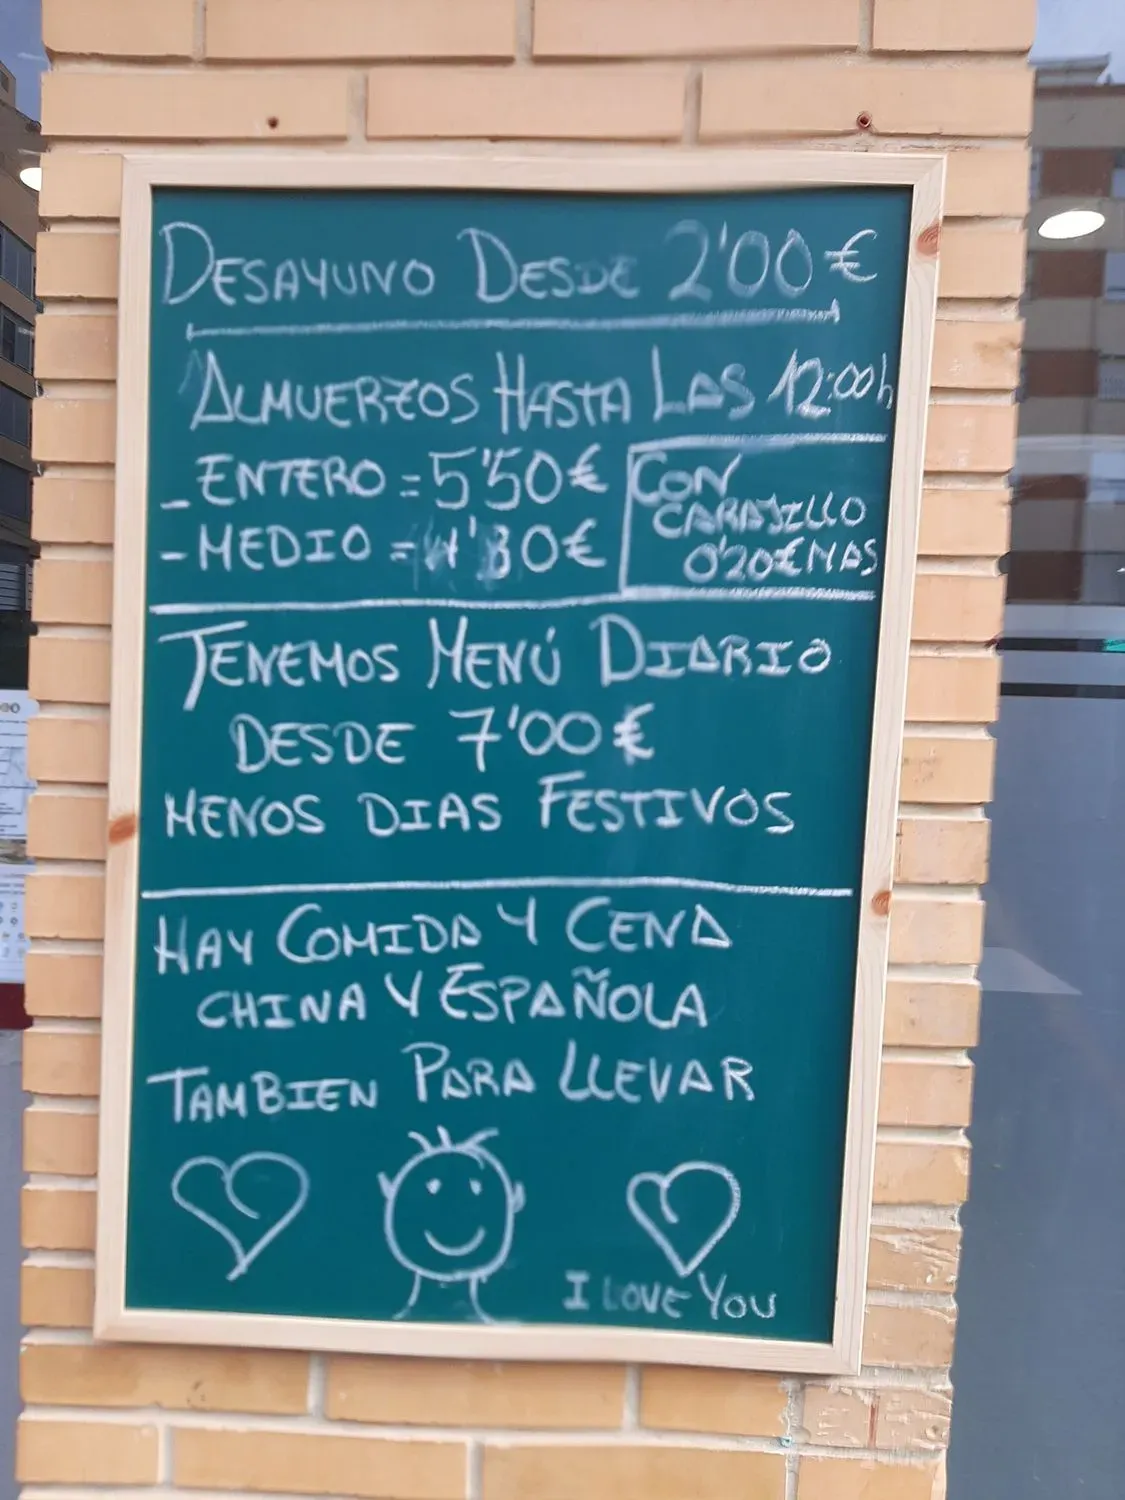 DESAYUNO DESDE 2'00€
ALMUERZOS HASTA LAS 12:00h
- ENTERO = 5'50€
- MEDIO = 4'30€
CON
CARAJILLO
0'20€ MAS
TENEMOS MENÚ DIARIO
DESDE 7'00€
MENOS DIAS FESTIVOS
HAY COMIDA Y CENA
CHINA Y ESPAÑOLA
TAMBIEN PARA LLEVAR
I LOVE YOU